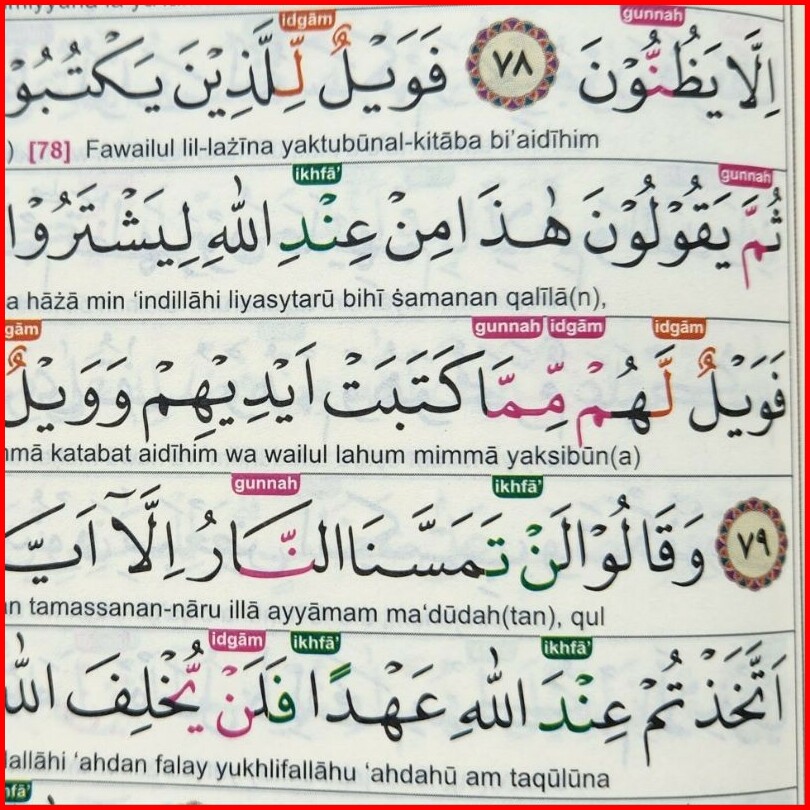 gunnah idgām
اِلَّا يَظُنُّوْنَ ٧٨ فَوَيْلٌ لِّلَّذِيْنَ يَكْتُبُوْ
) [78] Fawailul lil-lażīna yaktubūnal-kitāba bi’aidīhim
gunnah ikhfā’
ثُمَّ يَقُوْلُوْنَ هٰذَا مِنْ عِنْدِ اللّٰهِ لِيَشْتَرُوْا
a hāżā min ‘indillāhi liyasytarū bihī ṡamanan qalīlā(n),
idgām gunnah idgām gām
فَوَيْلٌ لَّهُمْ مِّمَّا كَتَبَتْ اَيْدِيْهِمْ وَوَيْلٌ
mā katabat aidīhim wa wailul lahum mimmā yaksibūn(a)
ikhfā’ gunnah
٧٩ وَقَالُوْا لَنْ تَمَسَّنَا النَّارُ اِلَّآ اَيَّ
n tamassanan-nāru illā ayyāmam ma‘dūdah(tan), qul
ikhfā’ ikhfā’ idgām
اَتَّخَذْتُمْ عِنْدَ اللّٰهِ عَهْدًا فَلَنْ يُّخْلِفَ اللّٰ
dallāhi ‘ahdan falay yukhlifallāhu ‘ahdahū am taqūlūna